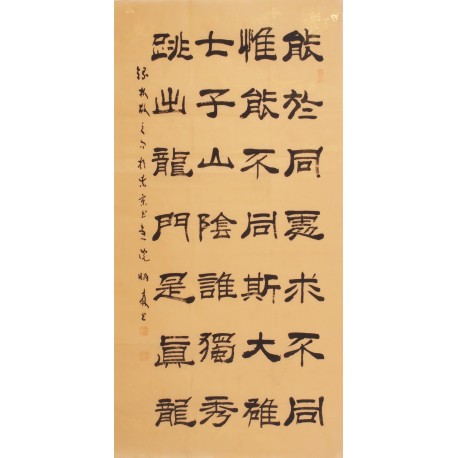 能於同處求不同
惟能不同斯大雄
七子山陰誰獨秀
跳出龍門是真龍